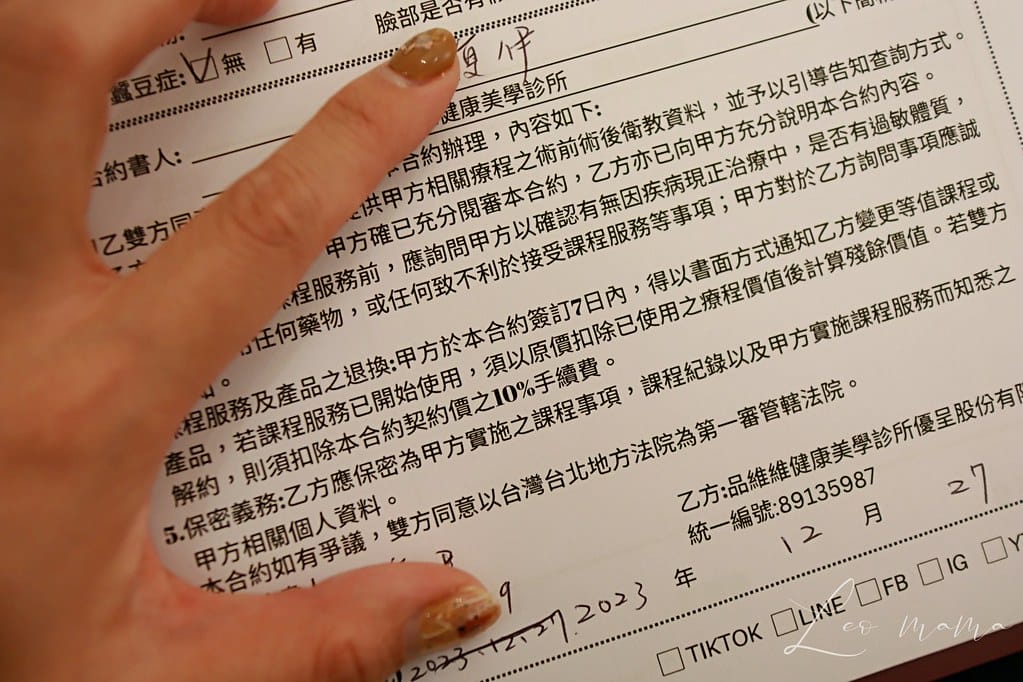 臉部是否有
(以下簡稱
蠶豆症: 無 有
健康美學診所
合約書人:
合約辦理,內容如下:
提供甲方相關療程之術前術後衛教資料,並予以引導告知查詢方式。
甲方確已充分閱審本合約,乙方亦已向甲方充分說明本合約內容。
課程服務前,應詢問甲方以確認有無因疾病現正治療中,是否有過敏體質,
任何藥物,或任何致不利於接受課程服務等事項;甲方對於乙方詢問事項應誠
知。
程服務及產品之退換:甲方於本合約簽訂7日內,得以書面方式通知乙方變更等值課程或
產品,若課程服務已開始使用,須以原價扣除已使用之療程價值後計算殘餘價值。若雙方
解約,則須扣除本合約契約價之10%手續費。
5.保密義務:乙方應保密為甲方實施之課程事項,課程紀錄以及甲方實施課程服務而知悉之
甲方相關個人資料。
本合約如有爭議,雙方同意以台灣台北地方法院為第一審管轄法院。
乙方:品維維健康美學診所優呈股份有限
統一編號:89135987
2023 年 12 月 27
2023.12.27.
TIKTOK LINE FB IG Y
Leo mama